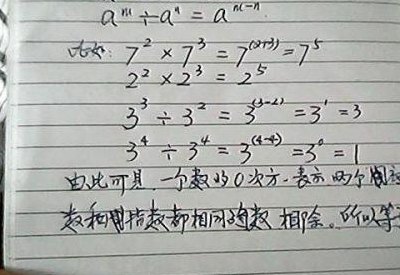 a^m ÷ a^n = a^{m-n}
比如: 7² × 7³ = 7^{(2+3)} = 7⁵
2² × 2³ = 2⁵
3³ ÷ 3² = 3^{(3-2)} = 3¹ = 3
3⁴ ÷ 3⁴ = 3^{(4-4)} = 3⁰ = 1
由此可见,一个数的0次方,表示两个
数和指数都相同的数 相除。所以等